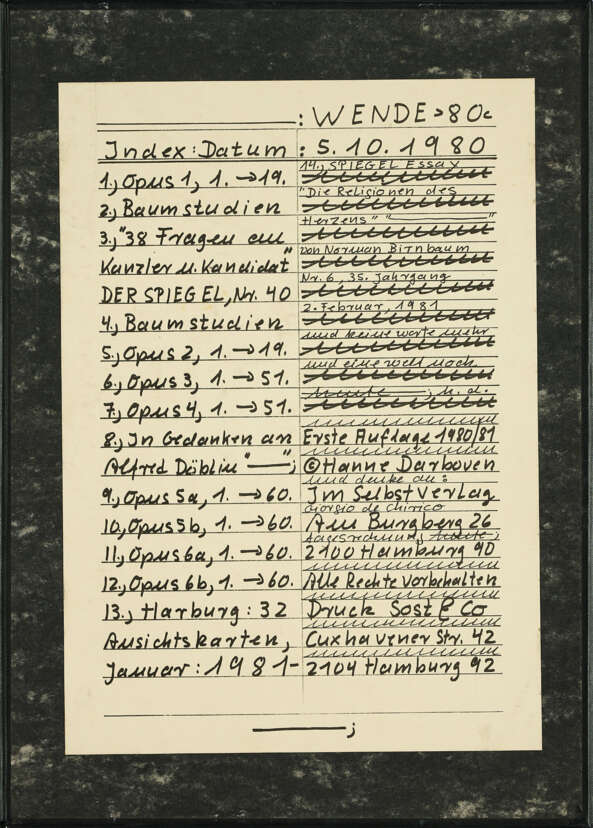 : WENDE >80<
Index: Datum : 5.10.1980
1., Opus 1, 1. → 19.
2., Baumstudien
3., "38 Fragen an
Kanzler u. Kandidat"
DER SPIEGEL, Nr. 40
4., Baumstudien
5., Opus 2, 1. → 19.
6., Opus 3, 1. → 51.
7., Opus 4, 1. → 51.
8., In Gedanken an
Alfred Döblin "——";
9., Opus 5a, 1. → 60.
10., Opus 5b, 1. → 60.
11., Opus 6a, 1. → 60.
12., Opus 6b, 1. → 60.
13., Harburg: 32
Ansichtskarten,
Januar: 1981-
14., SPIEGEL Essay
"Die Religionen des
Herzens" "——"
von Norman Birnbaum
Nr. 6, 35. Jahrgang
2. Februar, 1981
und keine worte mehr
und eine welt noch
heute ——; h. d.
Erste Auflage 1980/81
©Hanne Darboven
und denke an:
Im Selbstverlag
Giorgio de Chirico
Am Burgberg 26
tagesrechnung, heute;
2100 Hamburg 90
Alle Rechte vorbehalten
Druck Sost & Co
Cuxhavener Str. 42
2104 Hamburg 92
——;